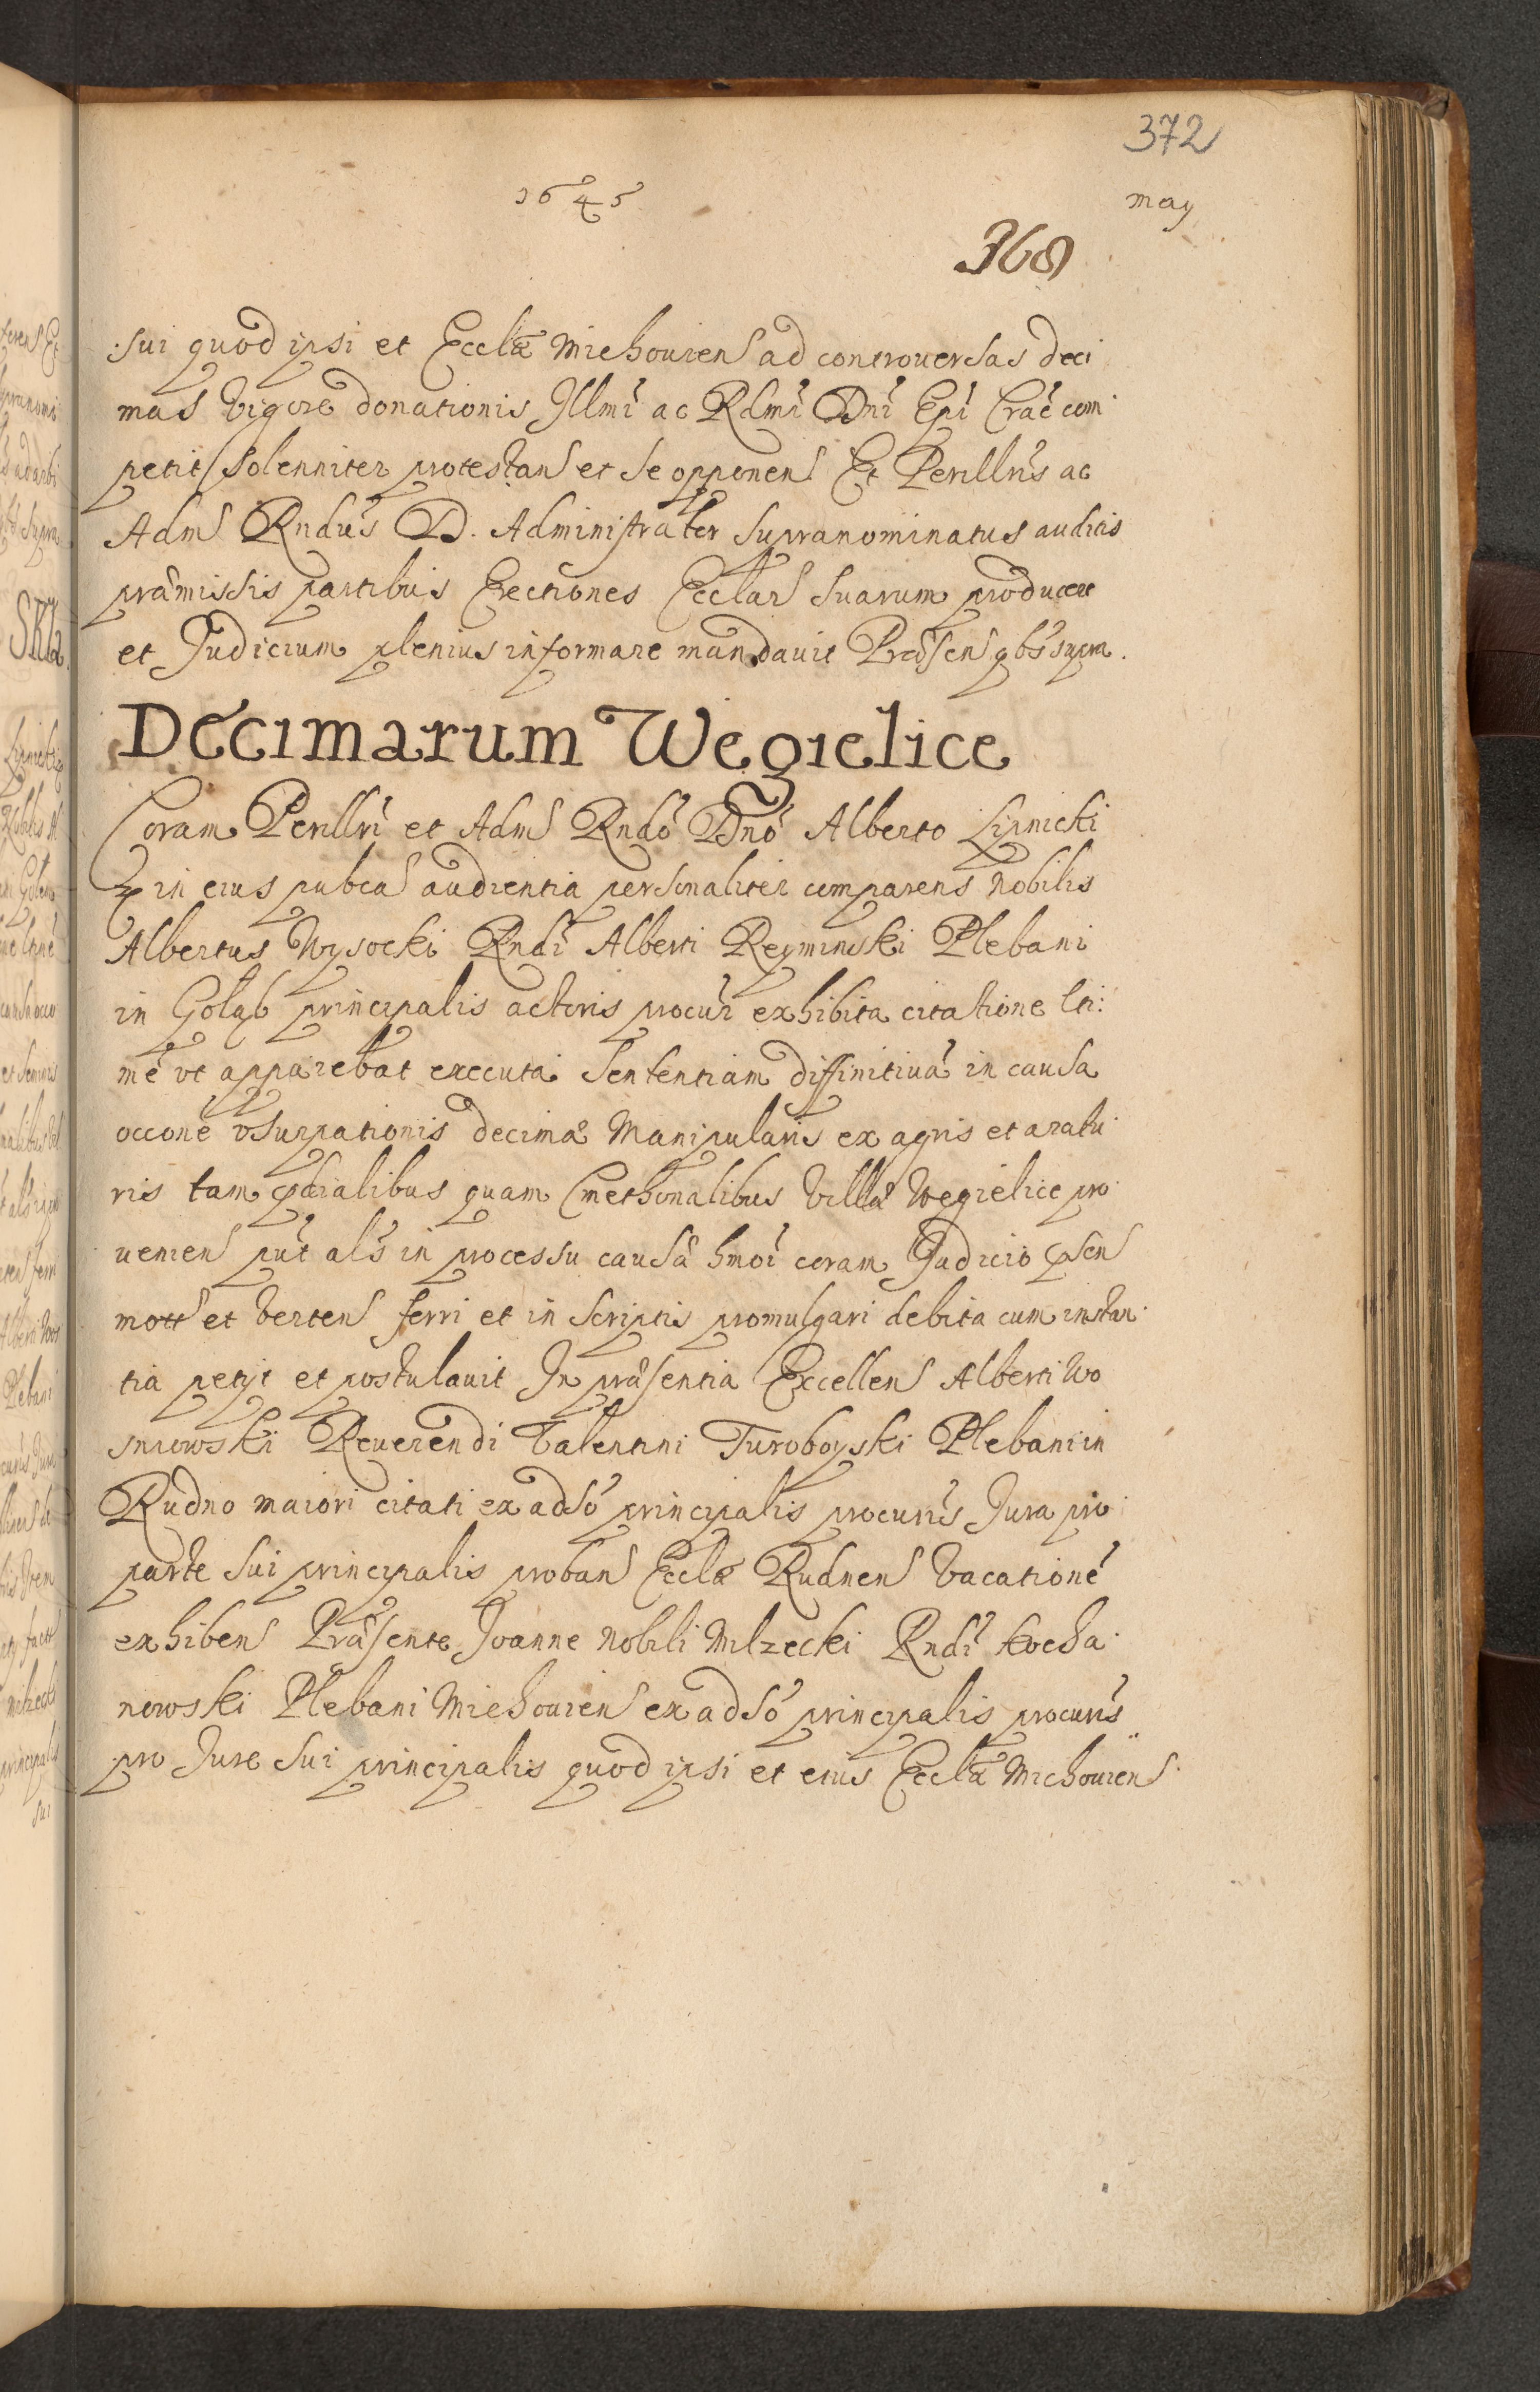 372
1645
may
368
sui quod ipsi et Ecclæ Miehouien ad controuersas deci
mas vigore donationis Illmi ac Rdmi Dni Epi Crac com
petit solenniter protestans et se opponens Et Perillris ac
Adm Rndus D. Administrator supranominatus auditis
præmissis partibus Erectiones Ecclar suarum producere
et Judicium plenius informare mandauit Præsen qbs supra.
Decimarum Wegielice
Coram Perillri et Adm Rndo Dno Alberto Lipnicki
in eius pubca audientia personaliter comparens Nobilis
Albertus Wysocki Rndi Alberti Reyminski Plebani
in Gołąb principalis actoris procur exhibita citatione lti:
me vt apparebat executa sententiam diffinitiuā in causa
occone vsurpationis decimæ Manipularis ex agris et aratu
ris tam prædialibus quam Cmethonalibus villæ Wegielice pro
uenien put als in processu causæ hmoi coram Judicio præsen
mott et verten ferri et in scriptis promulgari debita cum instan
tia petijt et postulauit In præsentia Excellen Alberti Wo
sniowski Reuerendi Valentini Turoboyski Plebani in
Rudno maiori citati ex adso principalis procuris Jura pro
parte sui principalis proban Ecclæ Rudnen vacationē
exhiben Præsente Joanne Nobili Milzecki Rndi Kocha
nowski Plebani Miehouien ex adso principalis procuris
pro Jure sui principalis quod ipsi et eius Ecclæ Michouien